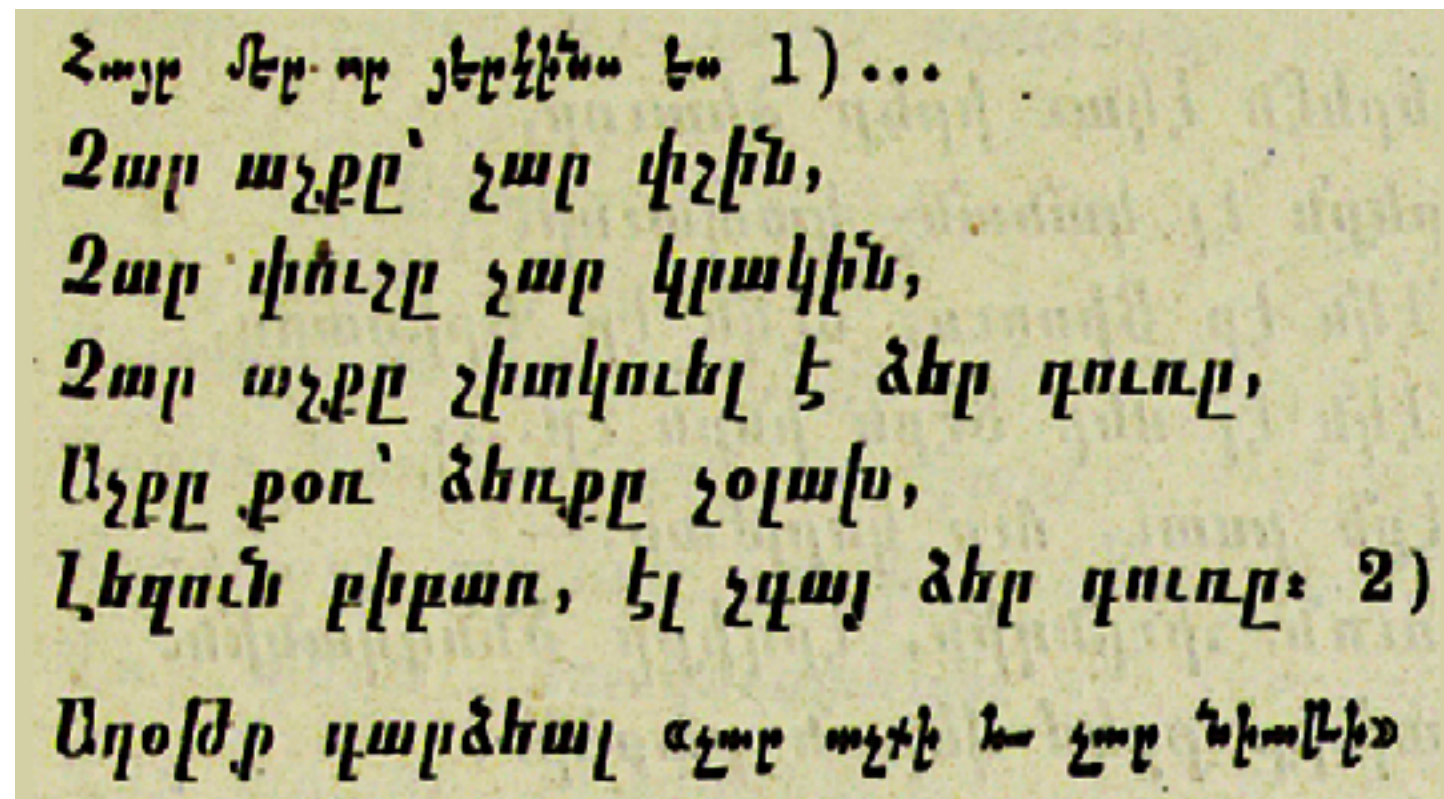 Հայր մեր որ յերկինս ես 1)...
Չար աչքը՝ չար փշին,
Չար փուշը չար կրակին,
Չար աչքը շիտկուել է ձեր դուռը,
Աչքը քօռ՝ ձեռքը չօլախ,
Լեզուն բիբառ, էլ չգայ ձեր դուռը։ 2)
Աղօթք դարձեալ «չար աչքի եւ չար նիաթի»